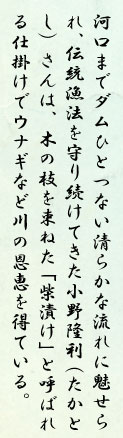 河口までダムひとつない清らかな流れに魅せら
れ、伝統漁法を守り続けてきた小野隆利（たかと
し）さんは、木の枝を束ねた「柴漬け」と呼ばれ
る仕掛けでウナギなど川の恩恵を得ている。